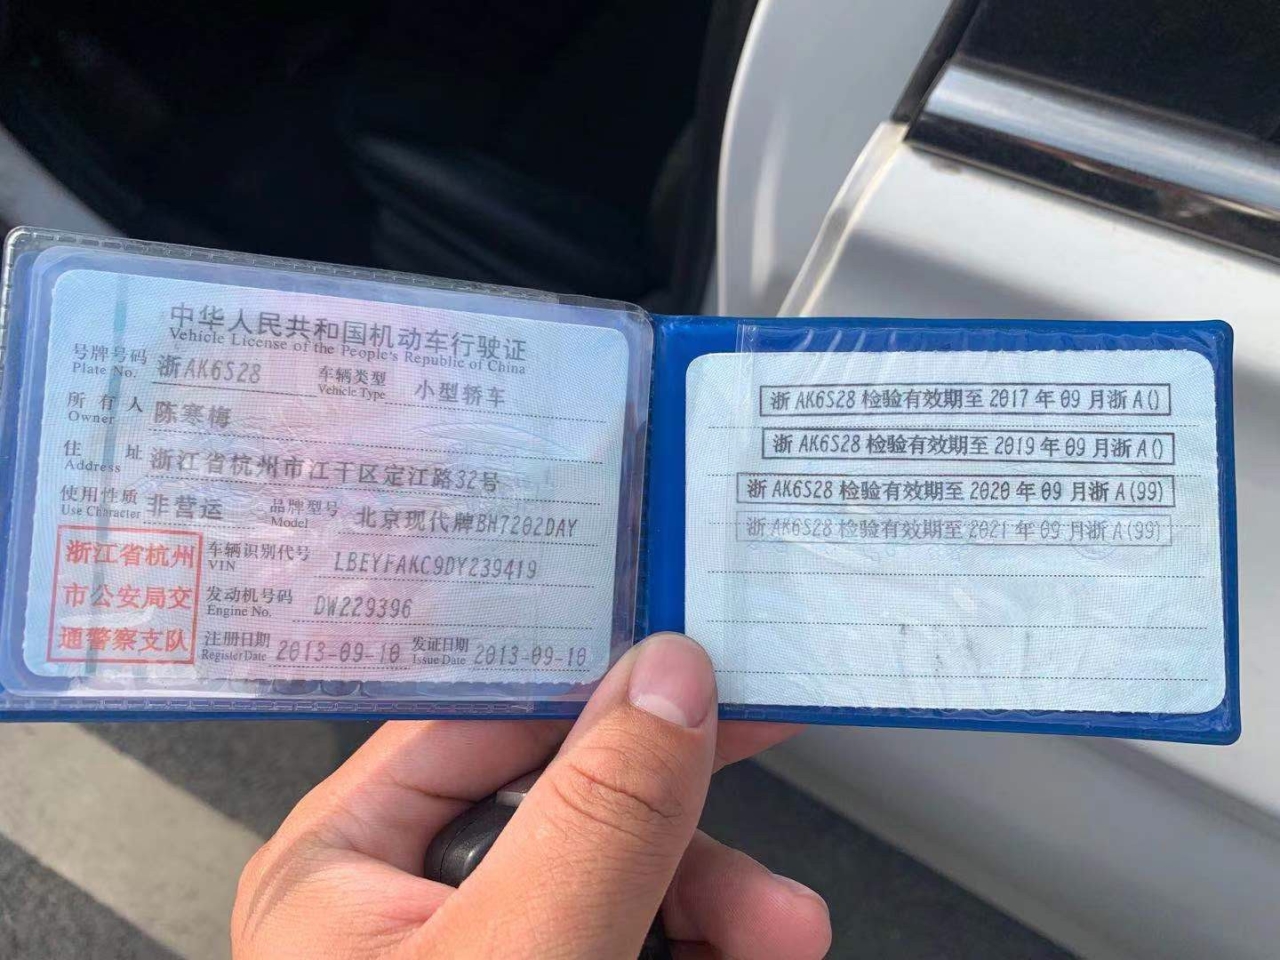 中华人民共和国机动车行驶证
Vehicle License of the People's Republic of China
号牌号码 浙AK6S28 车辆类型 小型轿车
Plate No. Vehicle Type
所有人 陈寒梅
Owner
住址 浙江省杭州市江干区定江路32号
Address
使用性质 非营运 品牌型号 北京现代牌BH7202DAY
Use Character Model
浙江省杭州
市公安局交
通警察支队
车辆识别代号 LBEYFAKC9DY239419
VIN
发动机号码 DW229396
Engine No.
注册日期 2013-09-10 发证日期 2013-09-10
Register Date Issue Date
浙 AK6S28 检验有效期至 2017 年 09 月浙 A()
浙 AK6S28 检验有效期至 2019 年 09 月浙 A()
浙 AK6S28 检验有效期至 2020 年 09 月浙 A(99)
浙 AK6S28 检验有效期至 2021 年 09 月浙 A(99)